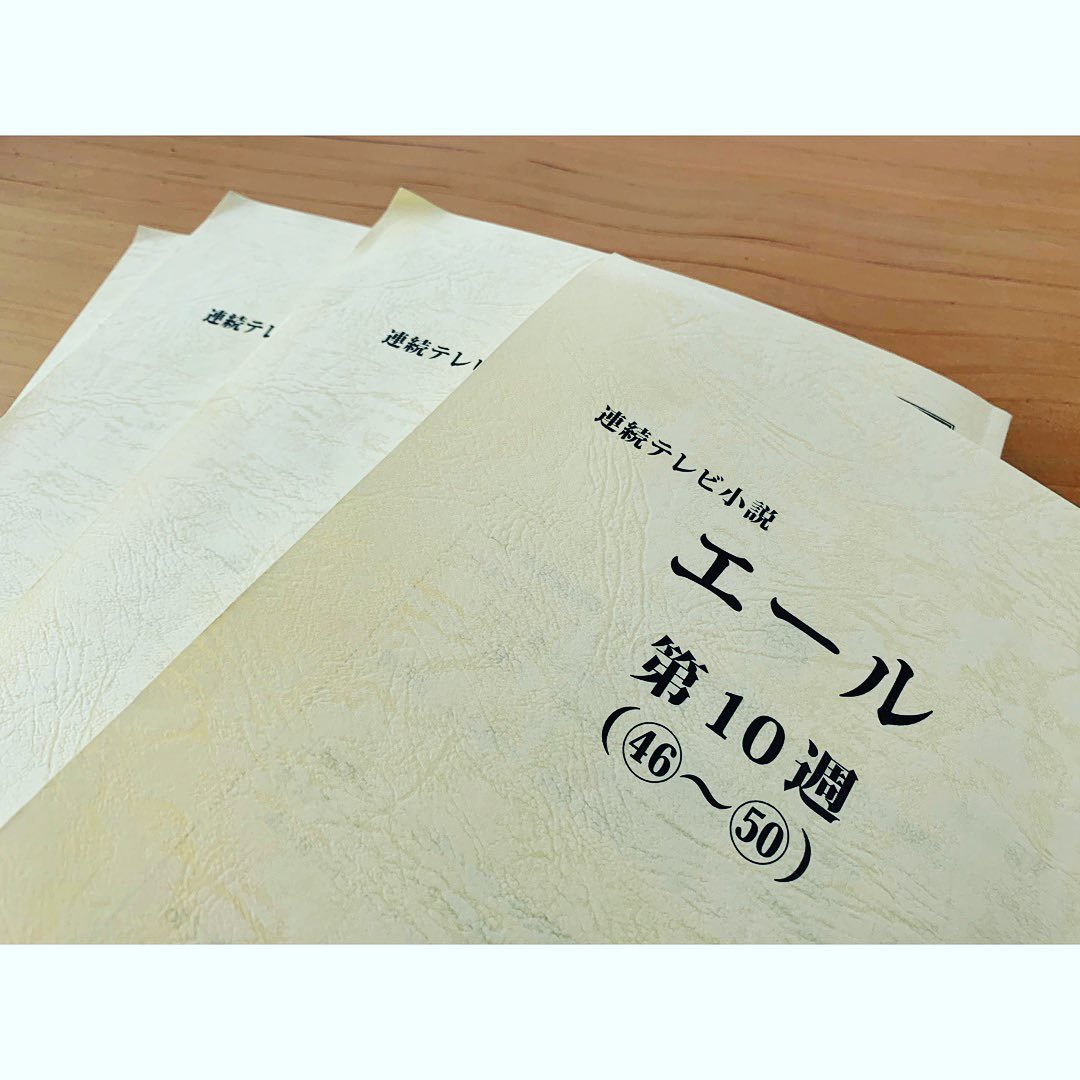 連続テレ
連続テレビ
連続テレビ小説
エール
第10週
(㊻～㊿)